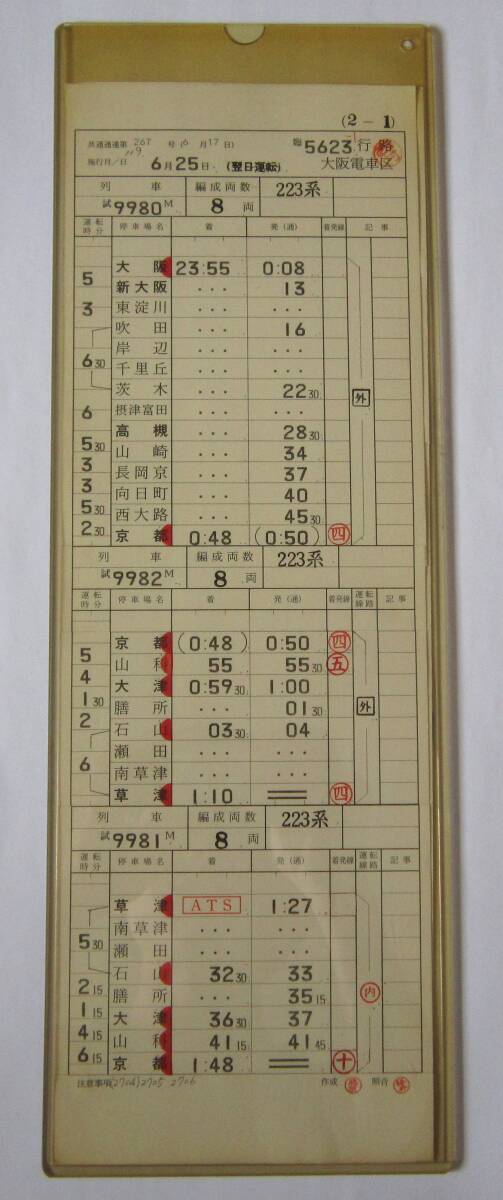 (2-1)
共通運達第 267 号(6月17日)
119
施行月/日 6月25日 (翌日運転) 臨5623行路
大阪電車区
列 車 編成両数 223系
試9980M 8両
運転時分 停車場名 着 発(通) 着発線 記事
大阪 23:55 0:08
5 新大阪 ... 13
3 東淀川 ... ...
吹田 ... 16
岸辺 ... ...
6 30 千里丘 ... ...
茨木 ... 22 30 外
6 摂津富田 ... ...
高槻 ... 28 30
5 30 山崎 ... 34
3 長岡京 ... 37
3 向日町 ... 40
5 30 西大路 ... 45 30
2 30 京都 0:48 (0:50) 四
列 車 編成両数 223系
試9982M 8両
運転時分 停車場名 着 発(通) 着発線 運転線路 記事
京都 (0:48) 0:50 四
5 山科 55 55 30 五
4 大津 0:59 30 1:00
1 30 膳所 ... 01 30 外
2 石山 03 30 04
瀬田 ... ...
6 南草津 ... ...
草津 1:10 == 四
列 車 編成両数 223系
試9981M 8両
運転時分 停車場名 着 発(通) 着発線 運転線路 記事
草津 ATS 1:27
南草津 ... ...
5 30 瀬田 ... ...
石山 32 30 33
2 15 膳所 ... 35 15 内
1 15 大津 36 30 37
4 15 山科 41 15 41 45
6 15 京都 1:48 == 十
注意事項(2704)2705 2706 作成 照合